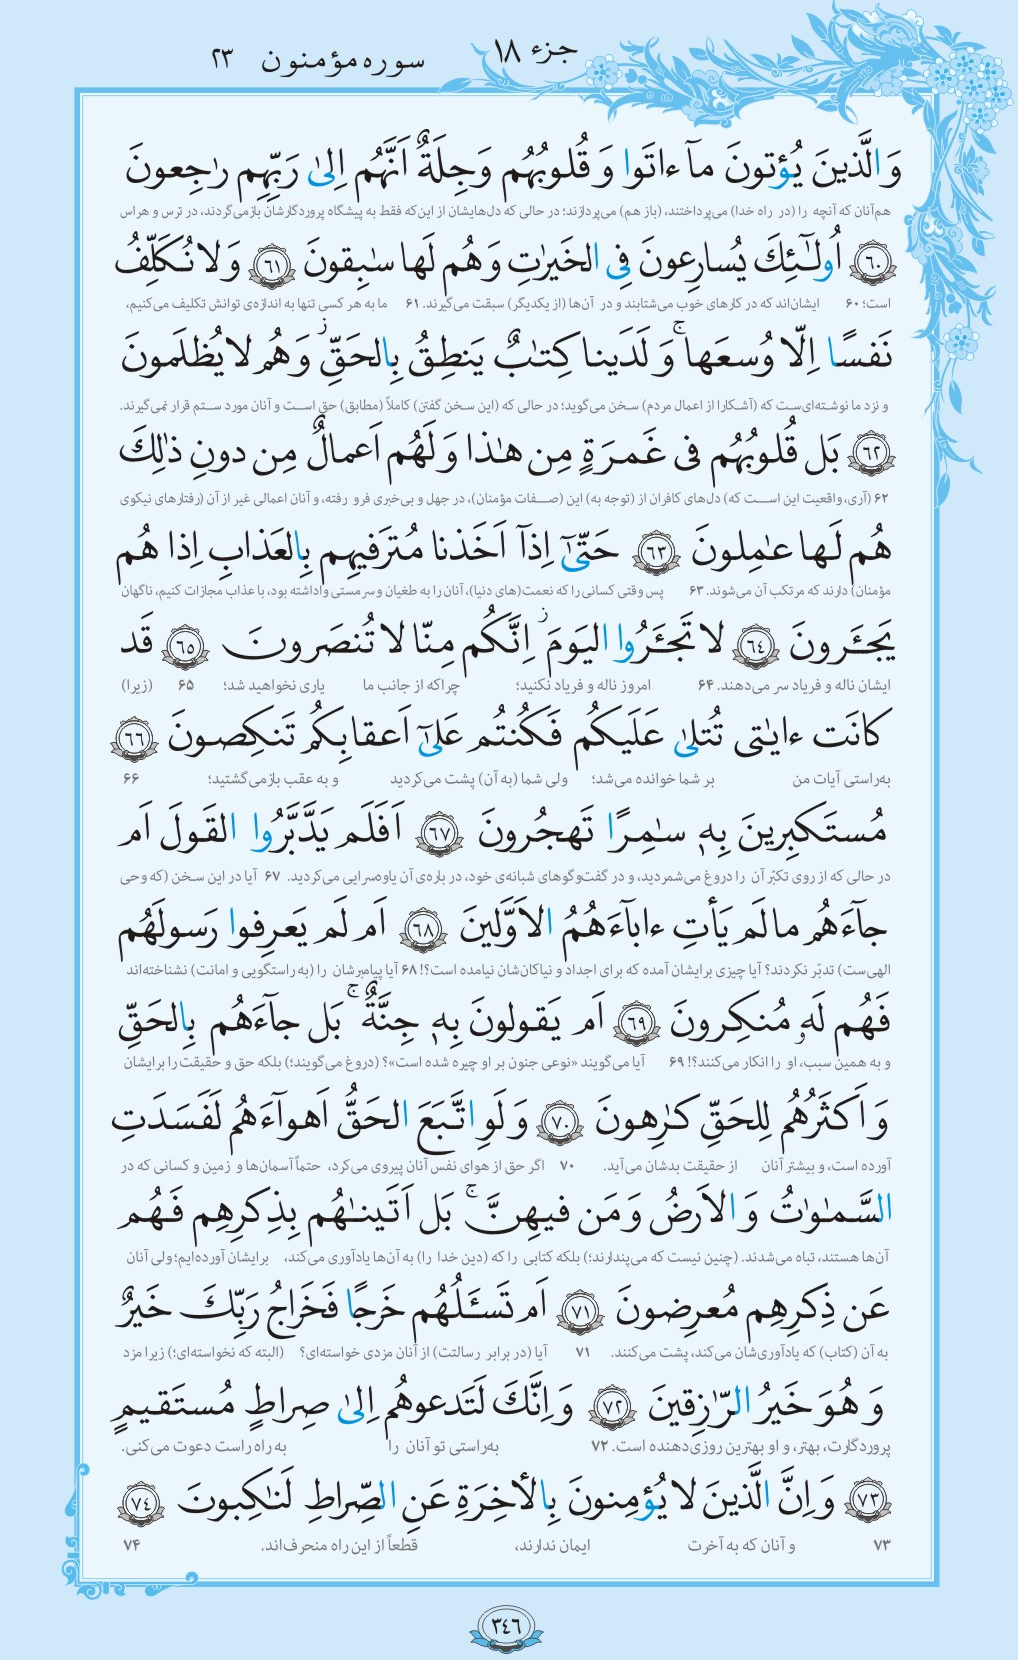 جزء ۱۸
سوره مؤمنون ۲۳
وَالَّذینَ یُؤتونَ مآ ءاتَوا وَ قُلوبُهُم وَجِلَةٌ اَنَّهُم اِلیٰ رَبِّهِم رٰجِعونَ
هم‌آنان که آنچه را (در راه خدا) می‌پرداختند، (باز هم) می‌پردازند؛ در حالی که دل‌هایشان از این‌که فقط به پیشگاه پروردگارشان بازمی‌گردند، در ترس و هراس
۶۰ اُولـٰٓئِكَ یُسارِعونَ فِی الخَیرٰتِ وَهُم لَها سٰبِقونَ ۶۱ وَلا نُكَلِّفُ
است؛ ۶۰ ایشان‌اند که در کارهای خوب می‌شتابند و در آن‌ها (از یکدیگر) سبقت می‌گیرند. ۶۱ ما به هر کسی تنها به اندازه‌ی توانش تکلیف می‌کنیم،
نَفسًا اِلّا وُسعَها ۚ وَ لَدَینا كِتٰبٌ یَنطِقُ بِالحَقِّ ز وَهُم لا یُظلَمونَ
و نزد ما نوشته‌ای‌ست که (آشکارا از اعمال مردم) سخن می‌گوید؛ در حالی که (این سخن گفتن) کاملاً (مطابق) حق است و آنان مورد ستم قرار نمی‌گیرند.
۶۲ بَل قُلوبُهُم فی غَمرَةٍ مِن هٰذا وَ لَهُم اَعمالٌ مِن دونِ ذٰلِكَ
۶۲ (آری، واقعیت این است که) دل‌های کافران از (توجه به) این (صفات مؤمنان)، در جهل و بی‌خبری فرو رفته، و آنان اعمالی غیر از آن (رفتارهای نیکوی
هُم لَها عٰمِلونَ ۶۳ حَتّیٰٓ اِذآ اَخَذنا مُترَفیهِم بِالعَذابِ اِذا هُم
مؤمنان) دارند که مرتکب آن می‌شوند. ۶۳ پس وقتی کسانی را که نعمت(های دنیا)، آنان را به طغیان و سرمستی واداشته بود، با عذاب مجازات کنیم، ناگهان
یَجـَٔرونَ ۶۴ لا تَجـَٔرُوا الیَومَ ز اِنَّكُم مِنّا لا تُنصَرونَ ۶۵ قَد
ایشان ناله و فریاد سر می‌دهند. ۶۴ امروز ناله و فریاد نکنید؛ چراکه از جانب ما یاری نخواهید شد؛ ۶۵ (زیرا)
كانَت ءایٰتی تُتلیٰ عَلَیكُم فَكُنتُم عَلیٰٓ اَعقابِكُم تَنكِصونَ ۶۶
به‌راستی آیات من بر شما خوانده می‌شد؛ ولی شما (به آن) پشت می‌کردید و به عقب بازمی‌گشتید؛ ۶۶
مُستَكبِرینَ بِهٖ سٰمِرًا تَهجُرونَ ۶۷ اَفَلَم یَدَّبَّرُوا القَولَ اَم
در حالی که از روی تکبّر آن را دروغ می‌شمردید، و در گفت‌وگوهای شبانه‌ی خود، در باره‌ی آن یاوه‌سرایی می‌کردید. ۶۷ آیا در این سخن (که وحی
جآءَهُم ما لَم یَأتِ ءابآءَهُمُ الاَوَّلینَ ۶۸ اَم لَم یَعرِفوا رَسولَهُم
الهی‌ست) تدبّر نکردند؟ آیا چیزی برایشان آمده که برای اجداد و نیاکان‌شان نیامده است؟! ۶۸ آیا پیامبرشان را (به راستگویی و امانت) نشناخته‌اند
فَهُم لَهٗ مُنكِرونَ ۶۹ اَم یَقولونَ بِهٖ جِنَّةٌ ۚ بَل جآءَهُم بِالحَقِّ
و به همین سبب، او را انکار می‌کنند؟! ۶۹ آیا می‌گویند «نوعی جنون بر او چیره شده است»؟ (دروغ می‌گویند؛) بلکه حق و حقیقت را برایشان
وَ اَكثَرُهُم لِلحَقِّ كٰرِهونَ ۷۰ وَ لَوِ اتَّبَعَ الحَقُّ اَهوآءَهُم لَفَسَدَتِ
آورده است، و بیشتر آنان از حقیقت بدشان می‌آید. ۷۰ اگر حق از هوای نفس آنان پیروی می‌کرد، حتماً آسمان‌ها و زمین و کسانی که در
السَّمٰوٰتُ وَ الاَرضُ وَ مَن فیهِنَّ ۚ بَل اَتَینٰهُم بِذِكرِهِم فَهُم
آن‌ها هستند، تباه می‌شدند. (چنین نیست که می‌پندارند؛) بلکه کتابی را که (دین خدا را) به آن‌ها یادآوری می‌کند، برایشان آورده‌ایم؛ ولی آنان
عَن ذِكرِهِم مُعرِضونَ ۷۱ اَم تَسـَٔلُهُم خَرجًا فَخَراجُ رَبِّكَ خَیرٌ
به آن (کتاب) که یادآوری‌شان می‌کند، پشت می‌کنند. ۷۱ آیا (در برابر رسالتت) از آنان مزدی خواسته‌ای؟ (البته که نخواسته‌ای؛) زیرا مزد
وَ هُوَ خَیرُ الرّٰزِقینَ ۷۲ وَ اِنَّكَ لَتَدعوهُم اِلیٰ صِراطٍ مُستَقیمٍ
پروردگارت، بهتر، و او بهترین روزی‌دهنده است. ۷۲ به‌راستی تو آنان را به راه راست دعوت می‌کنی.
۷۳ وَ اِنَّ الَّذینَ لا یُؤمِنونَ بِالأخِرَةِ عَنِ الصِّراطِ لَنٰكِبونَ ۷۴
۷۳ و آنان که به آخرت ایمان ندارند، قطعاً از این راه منحرف‌اند. ۷۴
۳۴۶